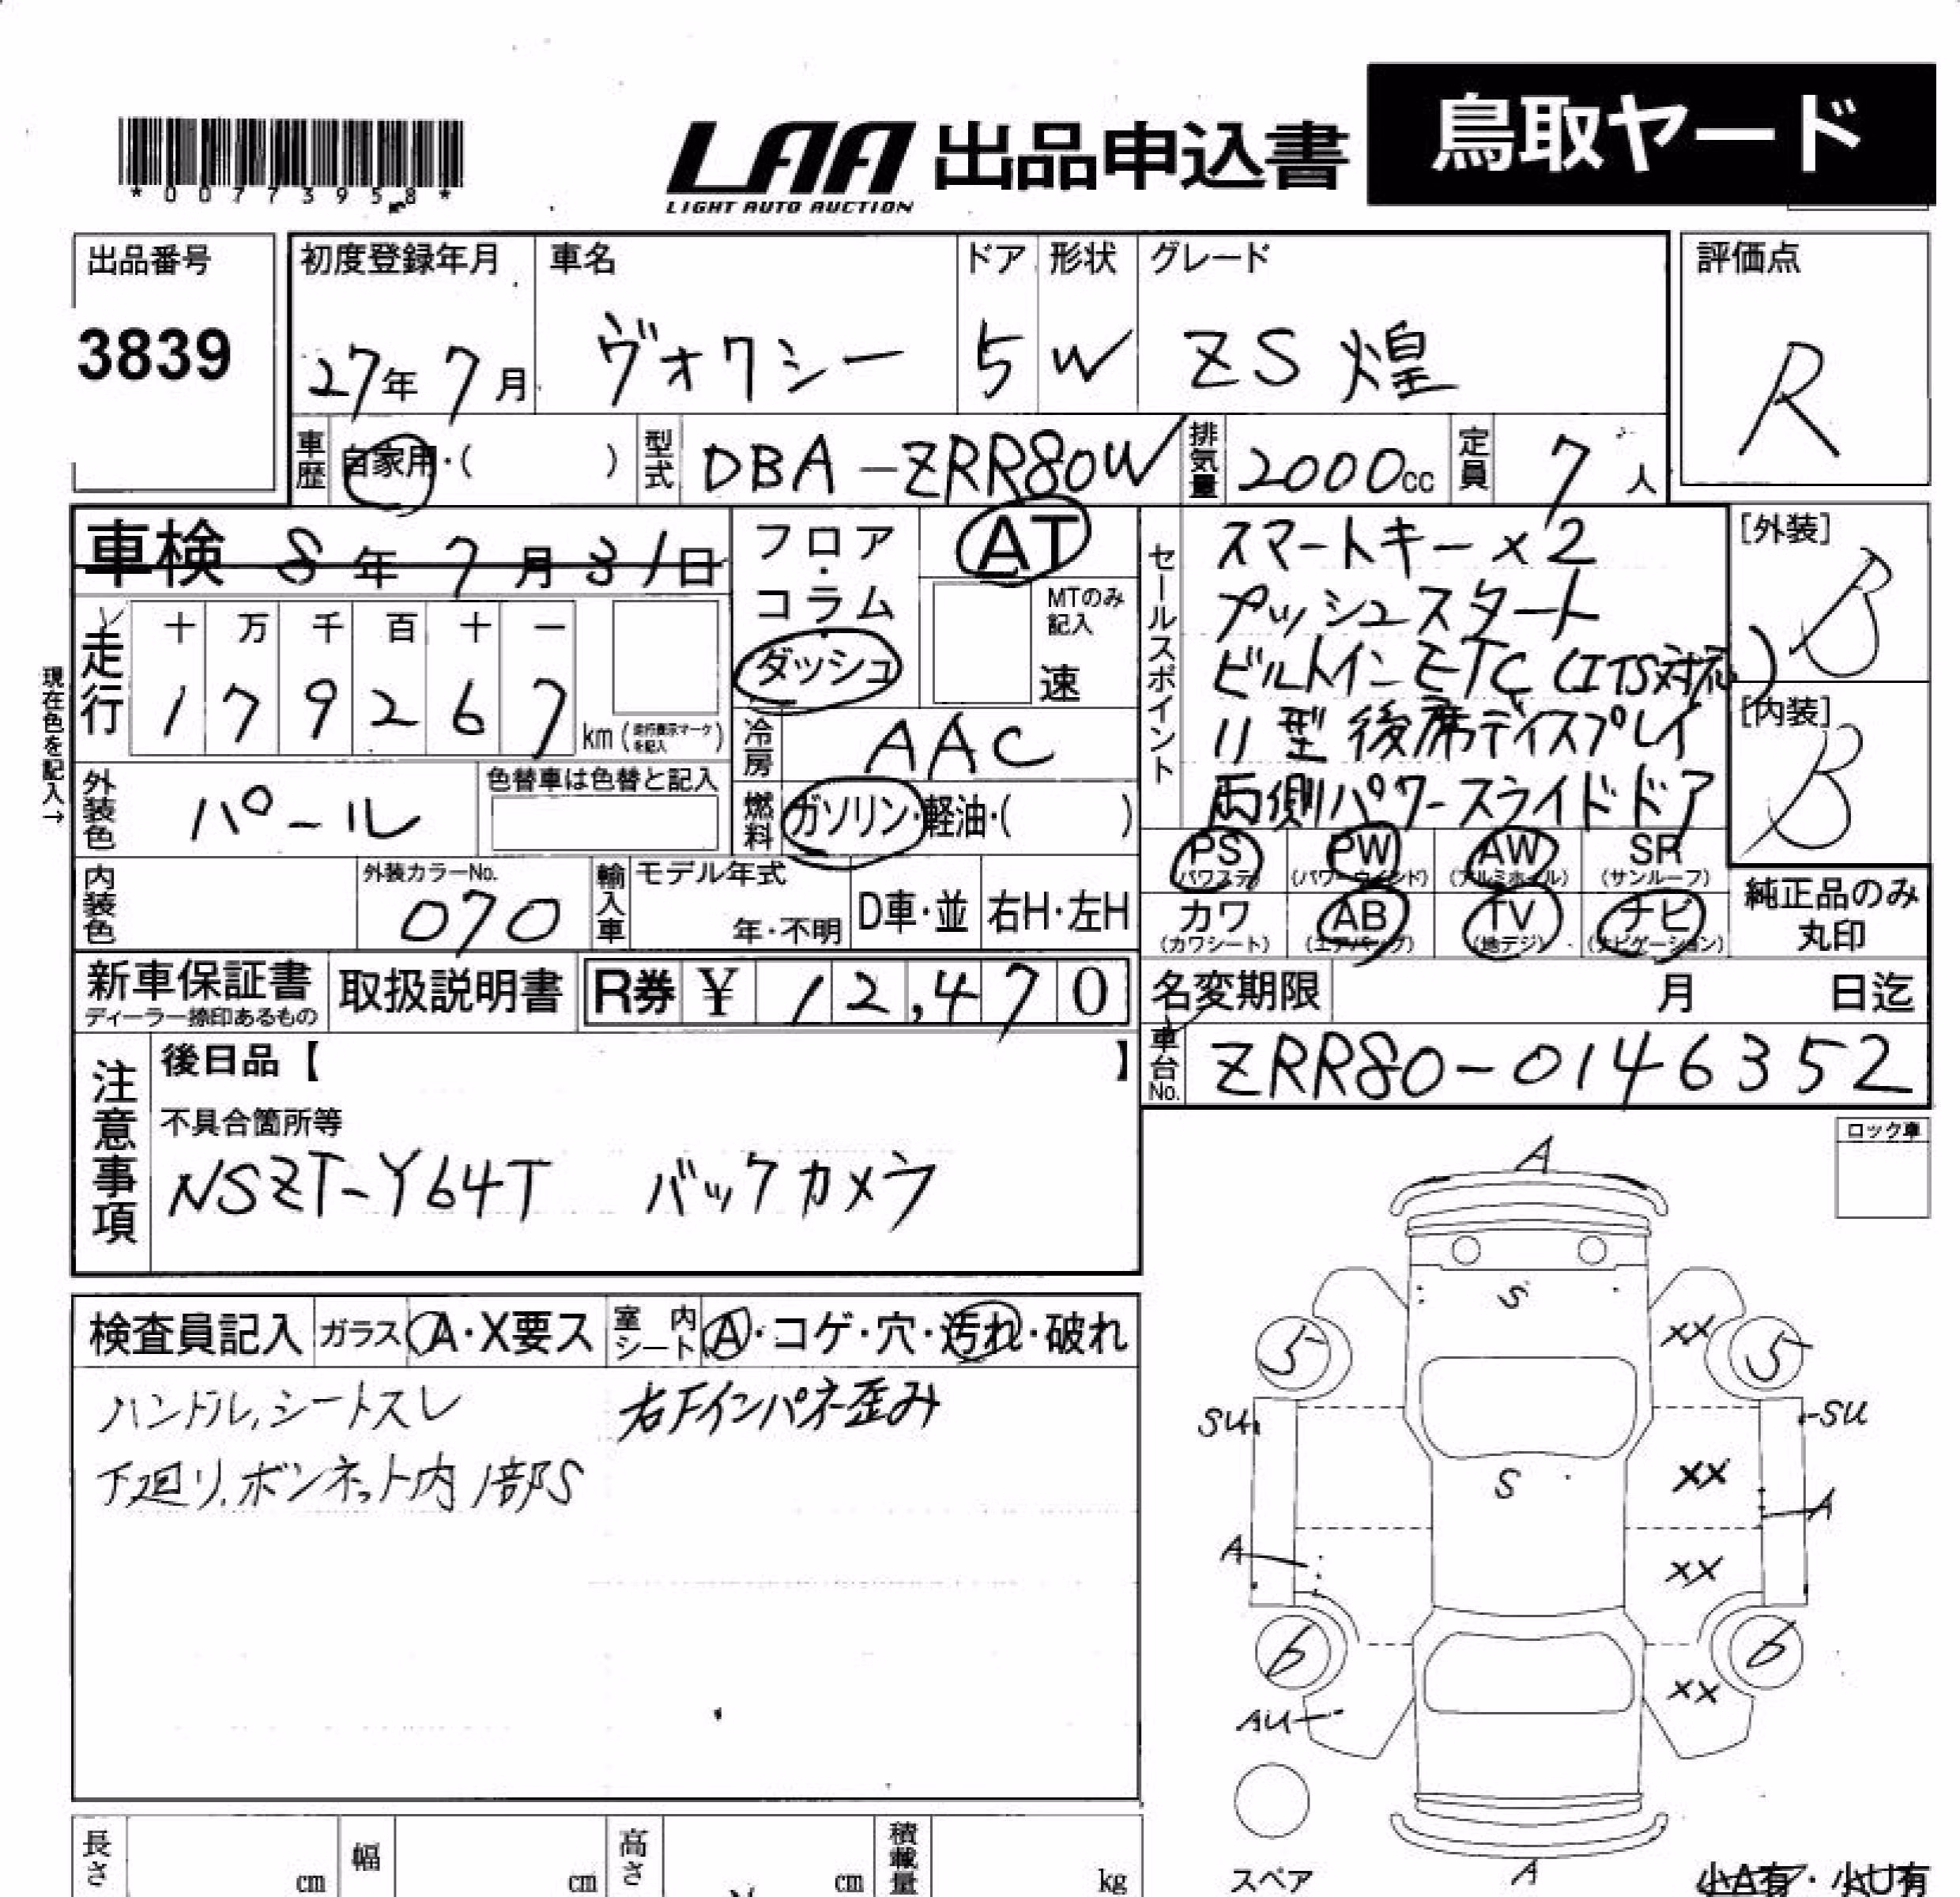 *00773958*
LAA 出品申込書 鳥取ヤード
LIGHT AUTO AUCTION
出品番号 初度登録年月 車名 ドア 形状 グレード 評価点
3839 27年 7月 ヴォクシー 5 W ZS 煌 R
車歴 自家用・( ) 型式 DBA-ZRR80W 排気量 2000cc 定員 7人
車検 8年 7月 31日 フロア・コラム・ダッシュ AT
MTのみ記入 速
セールスポイント
スマートキー×2
プッシュスタート
ビルトインETC (ITS対応)
11型後席ディスプレイ
両側パワースライドドア
[外装] B
[内装] B
現在色を記入→
走行 十 万 千 百 十 一
1 7 9 2 6 7 km (走行表示マークを記入)
冷房 AAC
外装色 パール 色替車は色替と記入
燃料 ガソリン・軽油・( )
PS (パワステ) PW (パワーウインド) AW (アルミホイル) SR (サンルーフ)
カワ (カワシート) AB (エアバッグ) TV (地デジ) ナビ (ナビゲーション)
純正品のみ丸印
内装色 外装カラーNo. 070 輸入車 モデル年式 年・不明 D車・並 右H・左H
新車保証書 ディーラー捺印あるもの 取扱説明書 R券 ¥ 12,470
名変期限 月 日迄
車台No. ZRR80-0146352
注意事項
後日品【 】
不具合箇所等
NSZT-Y64T バックカメラ
ロック車
検査員記入 ガラス A・X要ス 室内シート A・コゲ・穴・汚れ・破れ
ハンドル,シートスレ 右Fインパネ歪み
下廻り,ボンネット内1部S
A
S
XX
5 5
SU SU
S XX
A
A XX
6 6
XX
AU
スペア A 小A有・小U有
長さ cm 幅 cm 高さ cm 積載量 kg